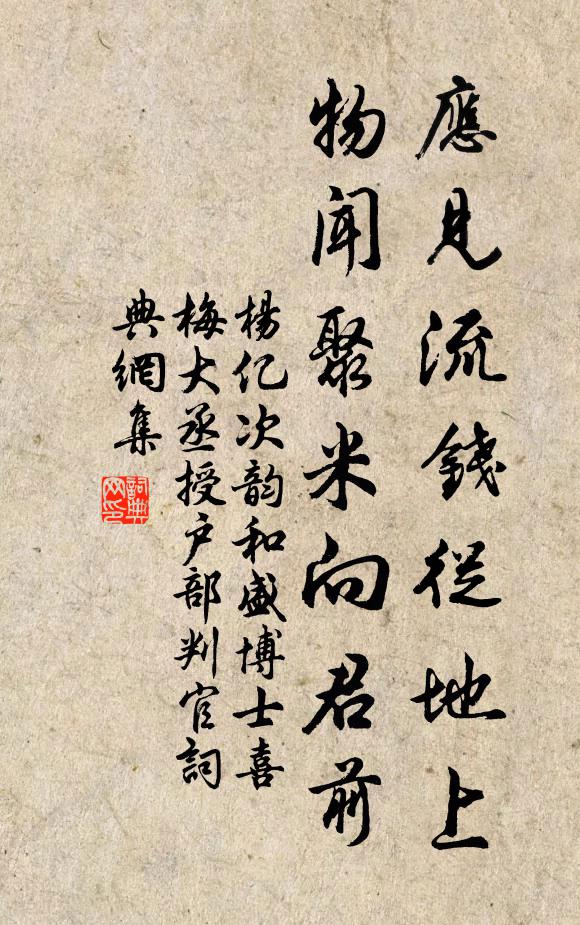 應見流錢從地上
物聞聚米向君前
楊亿次韵和盛博士喜
梅大丞授户部判官詞
典網集
詞典網印